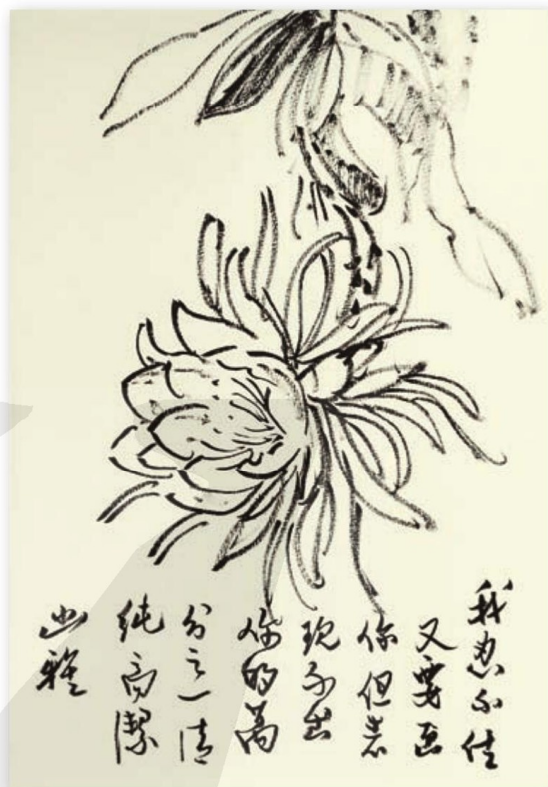 我忍不住
又要画
你但表
现不出
你的万
分之一清
纯高潔
幽雅